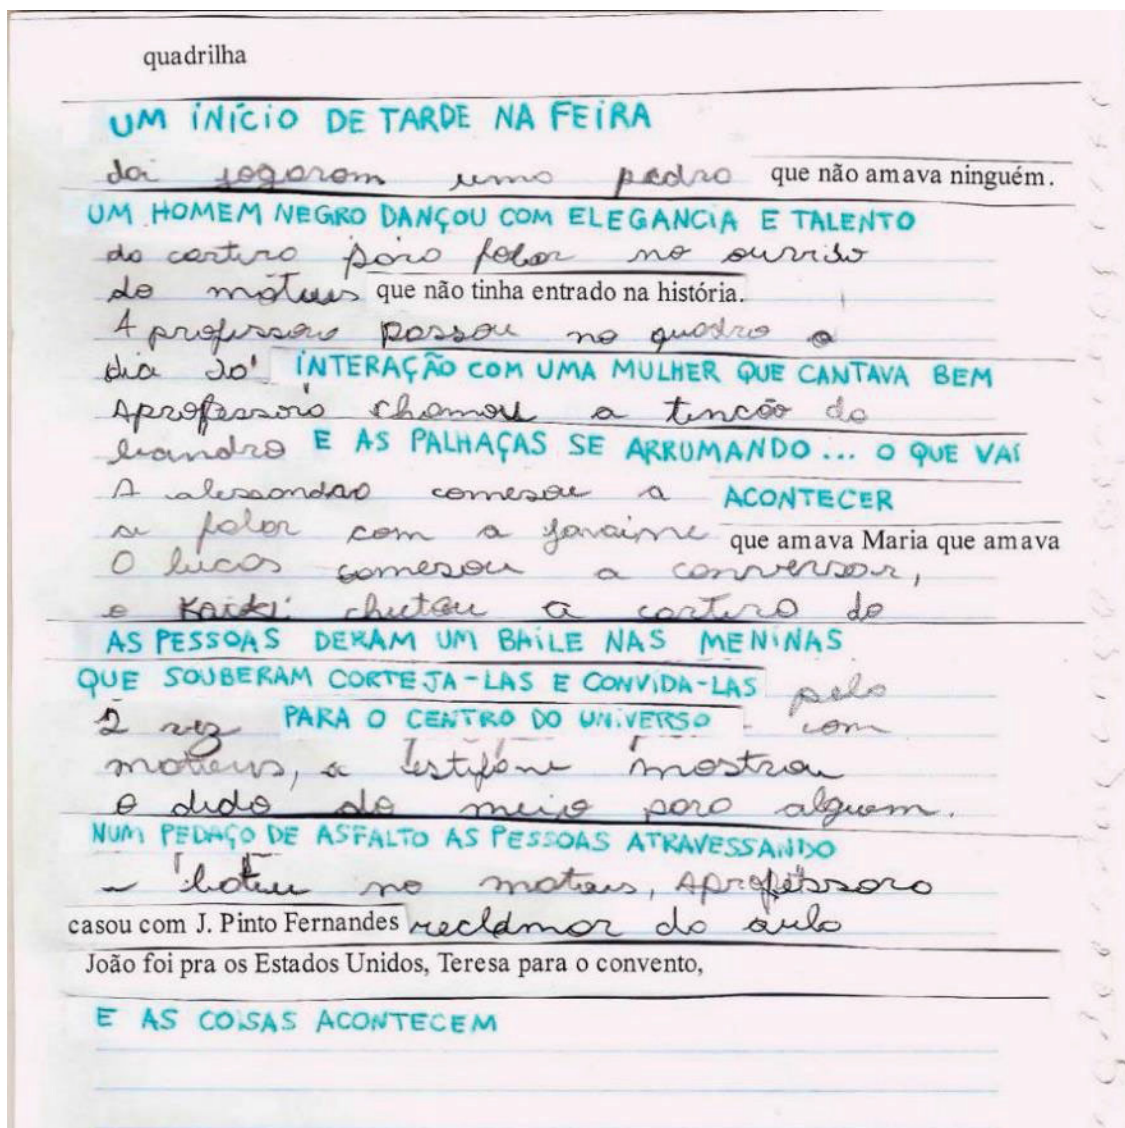 quadrilha
UM INÍCIO DE TARDE NA FEIRA
dai jogaram uma pedra que não amava ninguém.
UM HOMEM NEGRO DANÇOU COM ELEGANCIA E TALENTO
da cartira para falar no ouvido
do mateus que não tinha entrado na história.
A professora passou no quadro a
dia 20 INTERAÇÃO COM UMA MULHER QUE CANTAVA BEM
Aprofessora chamou a tencão do
leandro E AS PALHAÇAS SE ARRUMANDO... O QUE VAI
A alessandra comesou a ACONTECER
a falar com a que amava Maria que amava
O lucas comesou a conversar,
o Kaiki chutou a cartira do
AS PESSOAS DERAM UM BAILE NAS MENINAS
QUE SOUBERAM CORTEJA-LAS E CONVIDA-LAS pela
2 vez PARA O CENTRO DO UNIVERSO com
mateus, a mostrou
o dido do meio para alguem.
NUM PEDAÇO DE ASFALTO AS PESSOAS ATRAVESSANDO
bateu no mateus, Aprofessora
casou com J. Pinto Fernandes reclamar da aula
João foi pra os Estados Unidos, Teresa para o convento,
E AS COISAS ACONTECEM